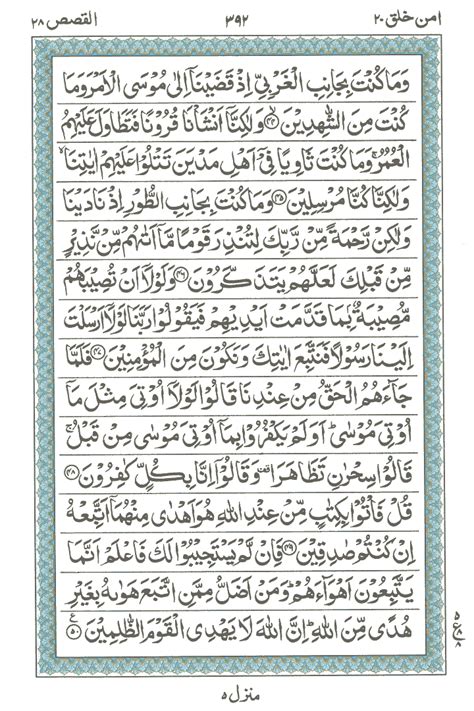 امن خلق ٢٠ ٣٩٢ القصص ٢٨
وَمَا كُنْتَ بِجَانِبِ الْغَرْبِيِّ اِذْ قَضَيْنَاۤ اِلٰى مُوْسَى الْاَمْرَ وَمَا
كُنْتَ مِنَ الشّٰهِدِيْنَ ﴿۴۴﴾ وَلٰكِنَّاۤ اَنْشَاْنَا قُرُوْنًا فَتَطَاوَلَ عَلَيْهِمُ
الْعُمُرُ ۚ وَمَا كُنْتَ ثَاوِيًا فِيْۤ اَهْلِ مَدْيَنَ تَتْلُوْا عَلَيْهِمْ اٰيٰتِنَا ۙ
وَلٰكِنَّا كُنَّا مُرْسِلِيْنَ ﴿۴۵﴾ وَمَا كُنْتَ بِجَانِبِ الطُّوْرِ اِذْ نَادَيْنَا
وَلٰكِنْ رَّحْمَةً مِّنْ رَّبِّكَ لِتُنْذِرَ قَوْمًا مَّاۤ اَتٰىهُمْ مِّنْ نَّذِيْرٍ
مِّنْ قَبْلِكَ لَعَلَّهُمْ يَتَذَكَّرُوْنَ ﴿۴۶﴾ وَلَوْلَاۤ اَنْ تُصِيْبَهُمْ
مُّصِيْبَةٌۢ بِمَا قَدَّمَتْ اَيْدِيْهِمْ فَيَقُوْلُوْا رَبَّنَا لَوْلَاۤ اَرْسَلْتَ
اِلَيْنَا رَسُوْلًا فَنَتَّبِعَ اٰيٰتِكَ وَنَكُوْنَ مِنَ الْمُؤْمِنِيْنَ ﴿۴۷﴾ فَلَمَّا
جَآءَهُمُ الْحَقُّ مِنْ عِنْدِنَا قَالُوْا لَوْلَاۤ اُوْتِيَ مِثْلَ مَاۤ
اُوْتِيَ مُوْسٰى ؕ اَوَلَمْ يَكْفُرُوْا بِمَاۤ اُوْتِيَ مُوْسٰى مِنْ قَبْلُ ۚ
قَالُوْا سِحْرٰنِ تَظَاهَرَا ۟ وَقَالُوْۤا اِنَّا بِكُلٍّ كٰفِرُوْنَ ﴿۴۸﴾
قُلْ فَاْتُوْا بِكِتٰبٍ مِّنْ عِنْدِ اللّٰهِ هُوَ اَهْدٰى مِنْهُمَاۤ اَتَّبِعْهُ
اِنْ كُنْتُمْ صٰدِقِيْنَ ﴿۴۹﴾ فَاِنْ لَّمْ يَسْتَجِيْبُوْا لَكَ فَاعْلَمْ اَنَّمَا
يَتَّبِعُوْنَ اَهْوَآءَهُمْ ؕ وَمَنْ اَضَلُّ مِمَّنِ اتَّبَعَ هَوٰىهُ بِغَيْرِ
هُدًى مِّنَ اللّٰهِ ؕ اِنَّ اللّٰهَ لَا يَهْدِى الْقَوْمَ الظّٰلِمِيْنَ ﴿۵۰﴾
منزل ۵